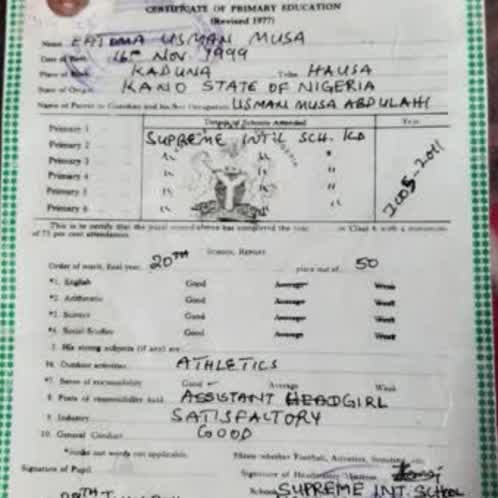 CERTIFICATE OF PRIMARY EDUCATION
(Revised 1977)
Name FATIMA USMAN MUSA
Date of Birth 16th NOV 1999
Place of Birth KADUNA Tribe HAUSA
State of Origin KANO STATE OF NIGERIA
Name of Parent or Guardian and his/her Occupation USMAN MUSA ABDULAHI
Details of Schools Attended Year
Primary 1
Primary 2 SUPREME INT'L SCH. KD
Primary 3
Primary 4
Primary 5
Primary 6
2005-2011
This is to certify that the pupil named above has completed the in Class 6 with a minimum
of 75 per cent attendance.
SCHOOL REPORT
Order of merit, final year, 20TH place out of 50
*1. English Good Average Weak
*2. Arithmetic Good Average Weak
*3. Science Good Average Weak
*4. Social Studies Good Average Weak
5. His strong subjects (if any) are
*6. Outdoor activities ATHLETICS
*7. Sense of responsibility Good Average Weak
8. Posts of responsibility held ASSISTANT HEADGIRL
9. Industry SATISFACTORY
10. General Conduct GOOD
words not applicable. State whether Football, Athletics, Scouting, etc.
Signature of Pupil Signature of Headmaster
School SUPREME INT. SCHOOL